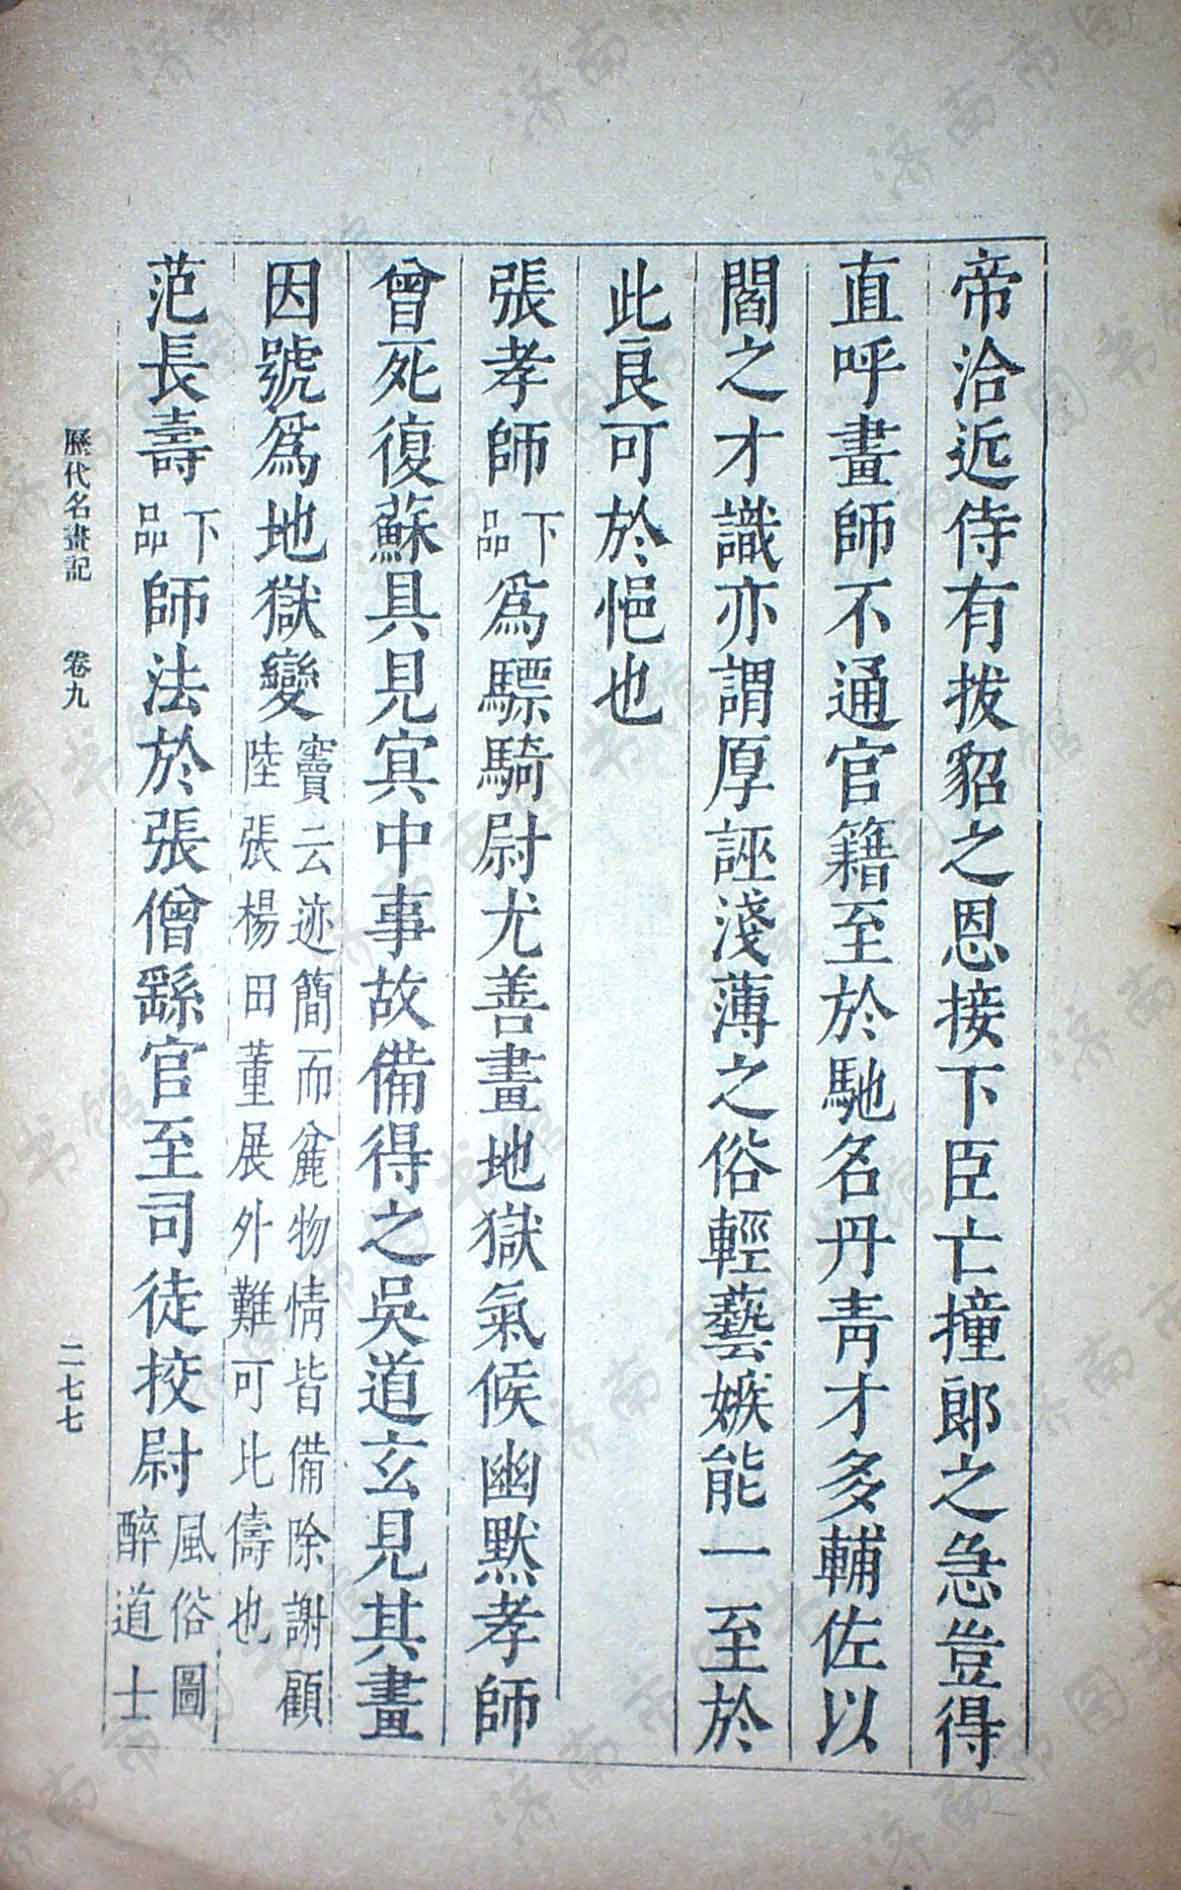 帝洽近侍有拔貂之恩接下臣亡撞郎之急豈得
直呼畫師不通官籍至於馳名丹青才多輔佐以
閻之才識亦謂厚誣淺薄之俗輕藝嫉能一至於
此良可於悒也
張孝師下品為驃騎尉尤善畫地獄氣候幽默孝師
曾死復蘇具見㝠中事故備得之吳道玄見其畫
因號為地獄變竇云迹簡而麄物情皆備除謝顧陸張楊田董展外難可比儔也
范長壽下品師法於張僧繇官至司徒挍尉風俗圖醉道士
歷代名畫記 卷九 二七七
济南市图书馆